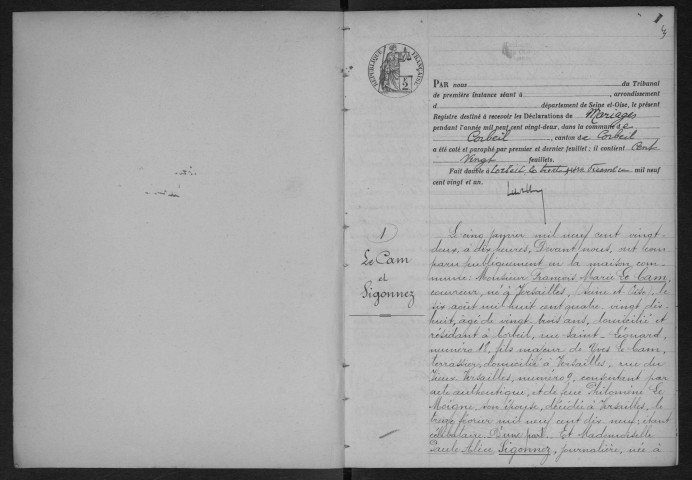 1
RÉPUBLIQUE FRANÇAISE
2
PAR nous du Tribunal
de première instance séant à , arrondissement
d département de Seine-et-Oise, le présent
Registre destiné à recevoir les Déclarations de Mariages
pendant l'année mil neuf cent vingt-deux, dans la commune de
Corbeil, canton de Corbeil
a été coté et paraphé par premier et dernier feuillet; il contient Cent
Vingt feuillets.
Fait double à Corbeil, le mil neuf
cent vingt et un.
1
Le Cam
et
Sigonnez
Le cinq janvier mil neuf cent vingt-
deux, à dix heures, Devant nous, ont com
paru publiquement en la maison com
mune: Monsieur François Marie Le Cam,
couvreur, né à Versailles, (Seine et Oise), le
six août mil huit cent quatre vingt dix
huit, âgé de vingt trois ans, domicilié et
résidant à Corbeil, rue Saint-Léonard,
numéro 18, fils majeur de Yves Le Cam,
terrassier, domicilié à Versailles, rue du
Vieux Versailles, numéro 9, consentant par
acte authentique, et de feue Philomène Le
Moigne, son épouse, décédée à Versailles, le
treize février mil neuf cent dix neuf; étant
célibataire D'une part. Et Mademoiselle
Paule Sigonnez, journalière, née à